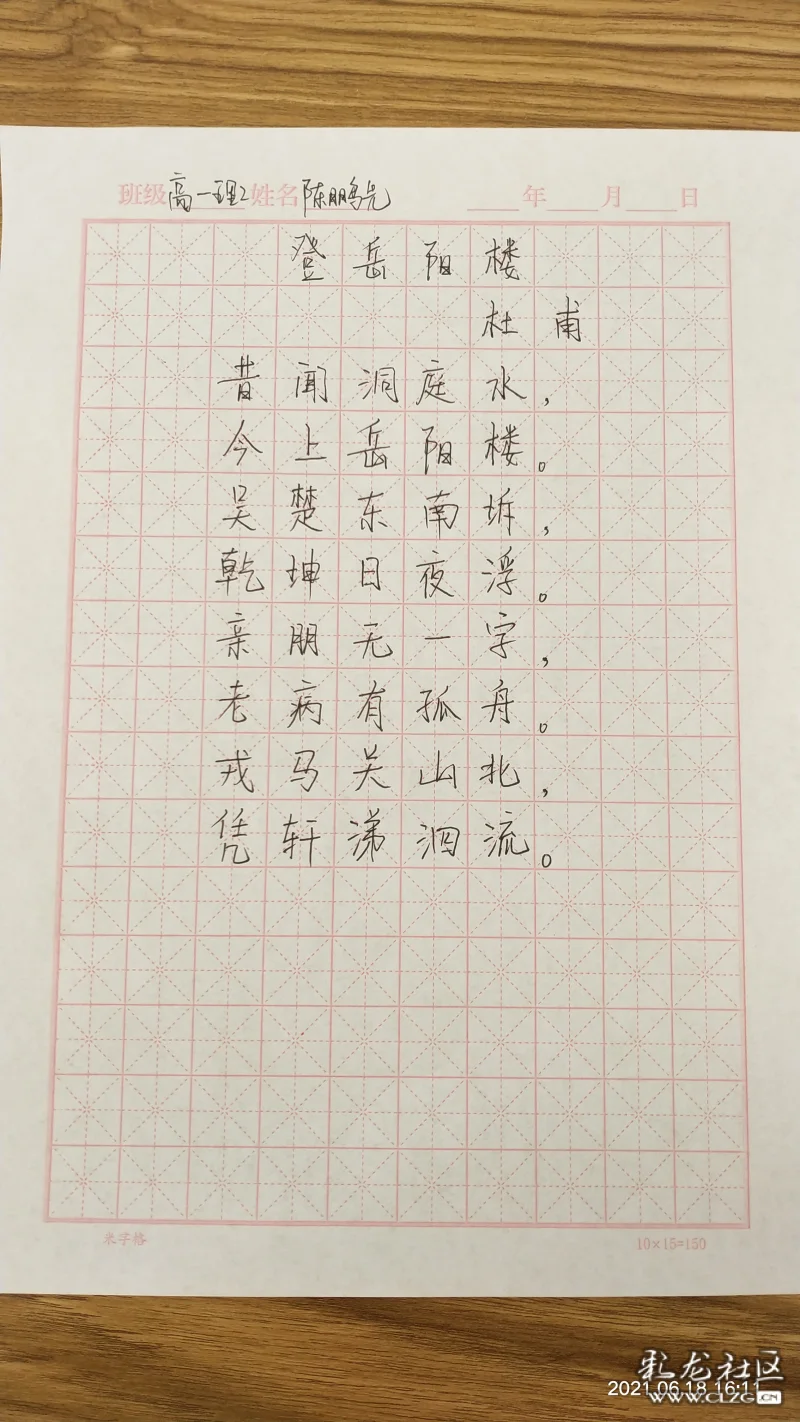 班级高一理2姓名陈鹏先 年 月 日
登岳阳楼
杜甫
昔闻洞庭水,
今上岳阳楼。
吴楚东南坼,
乾坤日夜浮。
亲朋无一字,
老病有孤舟。
戎马关山北,
凭轩涕泗流。
米字格 10×15=150
2021.06.18 16:11
龙社区
WWW.CLZG.CN